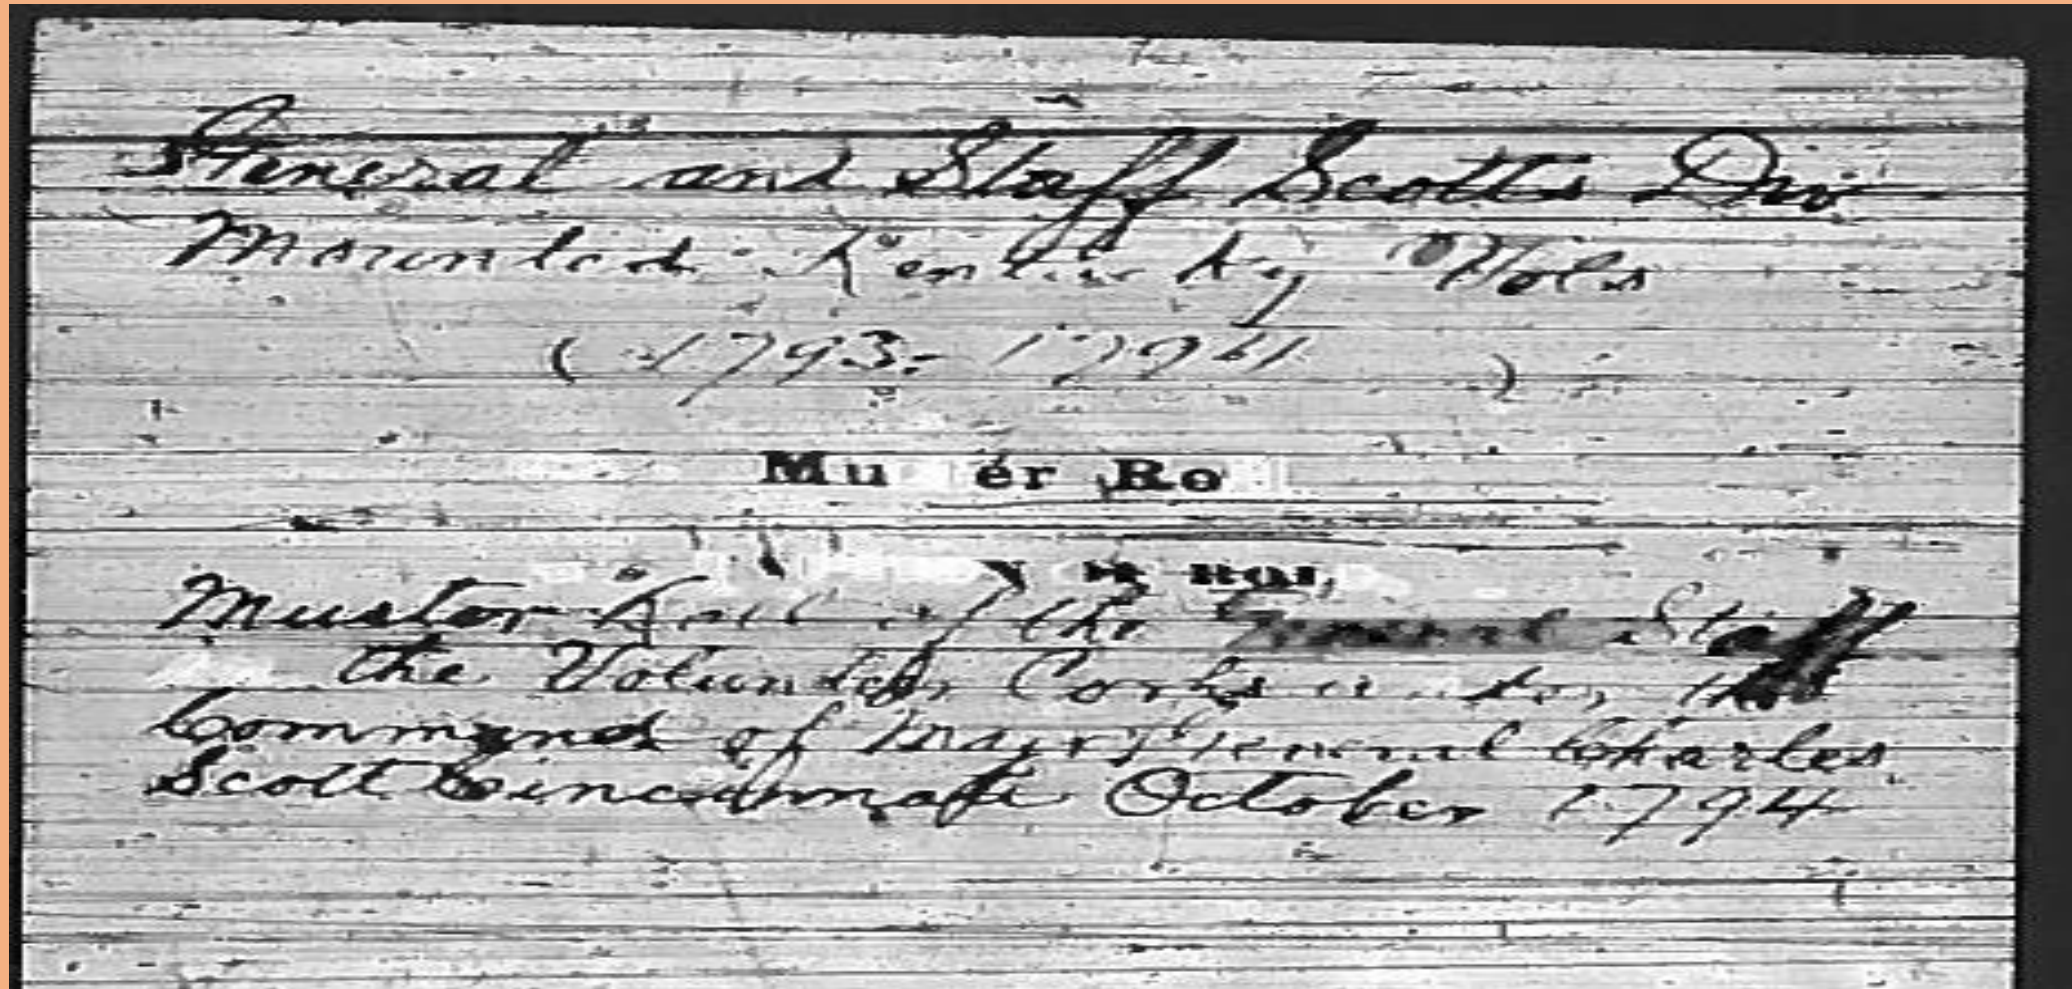 General and Staff Scotts Div
Mounted Kentucky Vols
(1793-1794)
Mu er Ro
Muster Roll of the General Staff
the Volunteer Corps under the
Command of Major General Charles
Scott Cincinnati October 1794